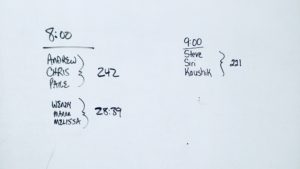 8:00
ANDREW
CHRIS
PAIGE
242
WENDY
MARIA
MELISSA
28:39
9:00
Steve
Siri
Koushik
221